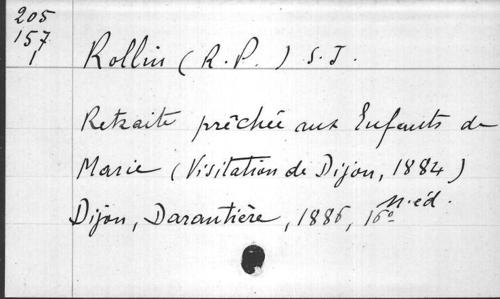 205
157
1
Rollin (R. P.) S. J.
Retraite prêchée aux Enfants de
Marie (Visitation de Dijon, 1884)
Dijon, Darantière, 1886, 16º n. éd.